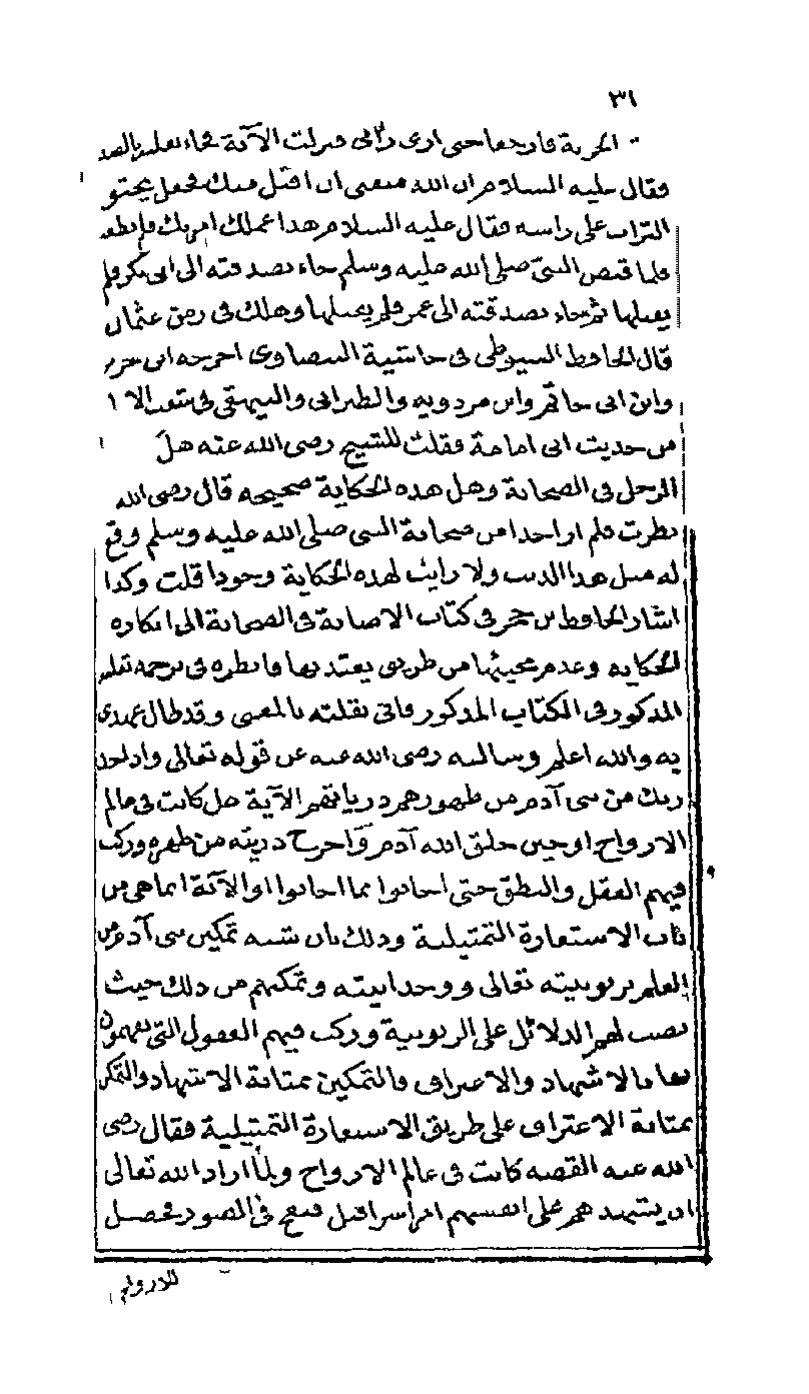 ٣١
الجزية فارجعا حتى ارى رأيى فنزلت الآية فجاء ثعلبة بالصد
فقال عليه السلام ان الله منعنى ان اقبل منك فجعل يحثو
التراب على راسه فقال عليه السلام هذا عملك امرتك فلم تطعـ
فلما قبض النبى صلى الله عليه وسلم جاء بصدقته الى ابى بكر فلم
يقبلها ثم جاء بصدقته الى عمر فلم يقبلها وهلك فى زمن عثمان
قال الحافظ السيوطى فى حاشية البيضاوى اخرجه ابن جرير
وابن ابى حاتم وابن مردويه والطبرانى والبيهقى فى شعب الا
من حديث ابى امامة فقلت للشيخ رضى الله عنه هل
الرجل فى الصحابة وهل هذه الحكاية صحيحه قال رضى الله
نظرت فلم ار احدا من صحابة النبى صلى الله عليه وسلم وقع
له مثل هذا الذنب ولا رايت لهذه الحكاية وجودا قلت وكذا
اشار الحافظ بن حجر فى كتاب الاصابة فى الصحابة الى انكاره
الحكايه وعدم مجيئها من طريق يعتد بها فانظره فى ترجمة ثعلبـ
المذكور فى الكتاب المذكور فانى نقلته بالمعنى وقد طال عهدى
به والله اعلم وسالته رضى الله عنه عن قوله تعالى واذ اخذ
ربك من بنى آدم من ظهورهم ذرياتهم الآية هل كانت فى عالم
الارواح او حين خلق الله آدم واخرج ذريته من ظهره وركب
فيهم العقل والنطق حتى اجابوا بما اجابوا او الآية انما هى من
باب الاستعارة التمثيلية وذلك بان شبه تمكين بنى آدم من
العلم بربوبيته تعالى ووحدانيته وتمكنهم من ذلك حيث
نصب لهم الدلائل على الربوبية وركب فيهم العقول التى يفهمون
بها بالاشهاد والاعتراف فالتمكين بمثابة الاشهاد والتمكن
بمثابة الاعتراف على طريق الاستعارة التمثيلية فقال رضى
الله عنه القصه كانت فى عالم الارواح ولما اراد الله تعالى
ان يشهدهم على انفسهم امر اسرافيل فنفخ فى الصور فحصل
للارواح